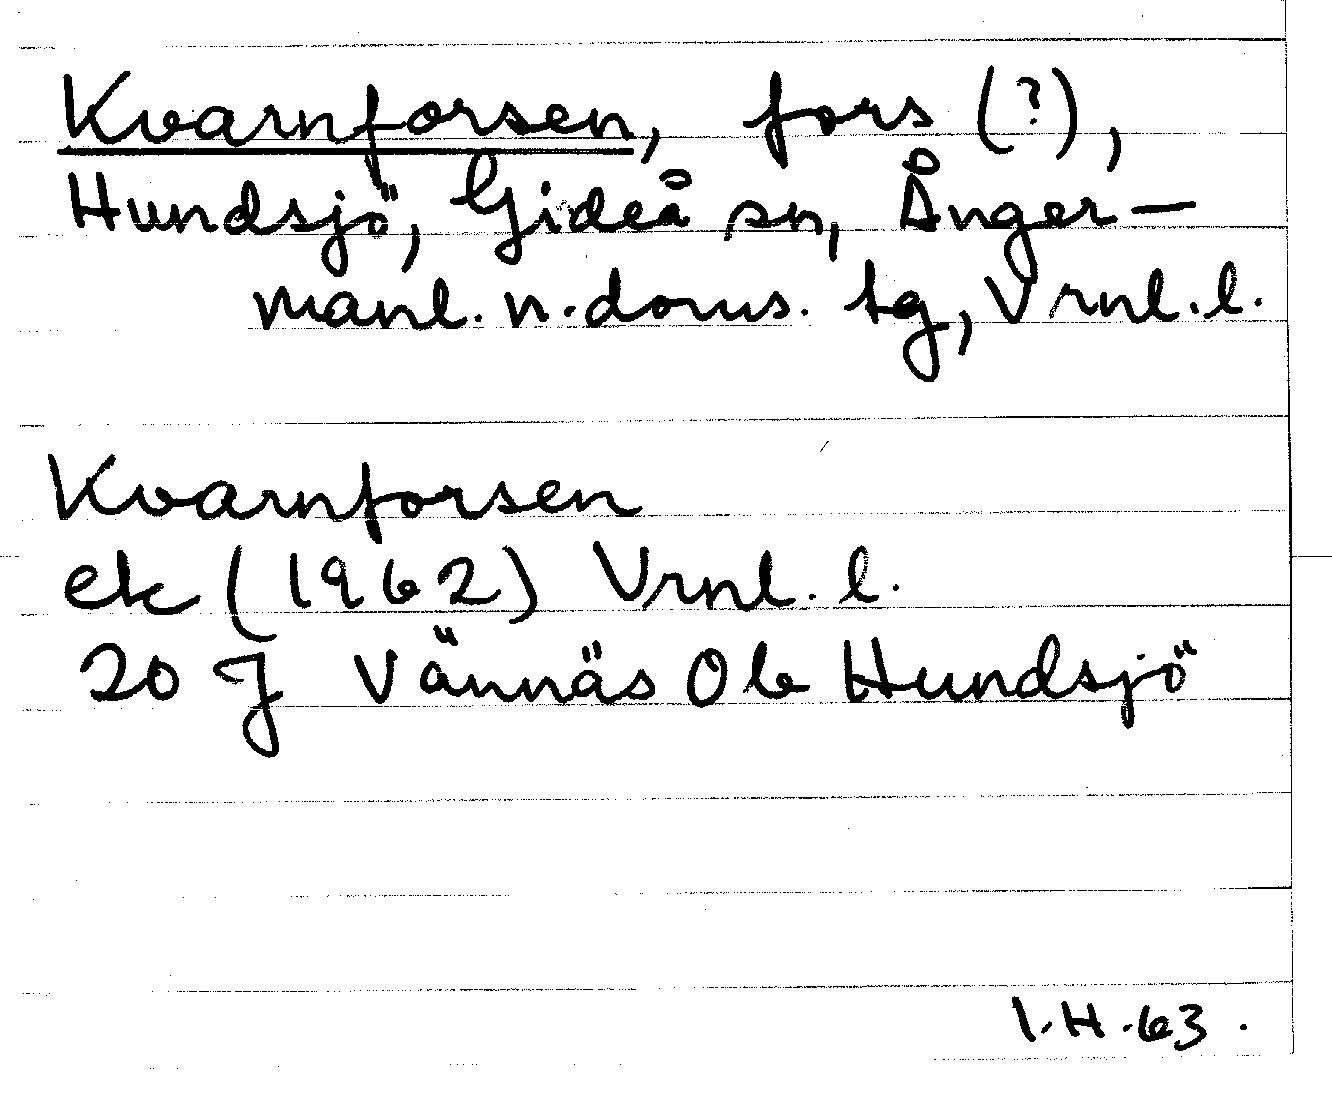 Kvarnforsen, fors (?),
Hundsjö, Gideå sn, Ånger-
manl. n. doms. tg, Vrnl. l.
Kvarnforsen
ek (1962) Vrnl. l.
20 J Vännäs Ob Hundsjö
I.H. 63.